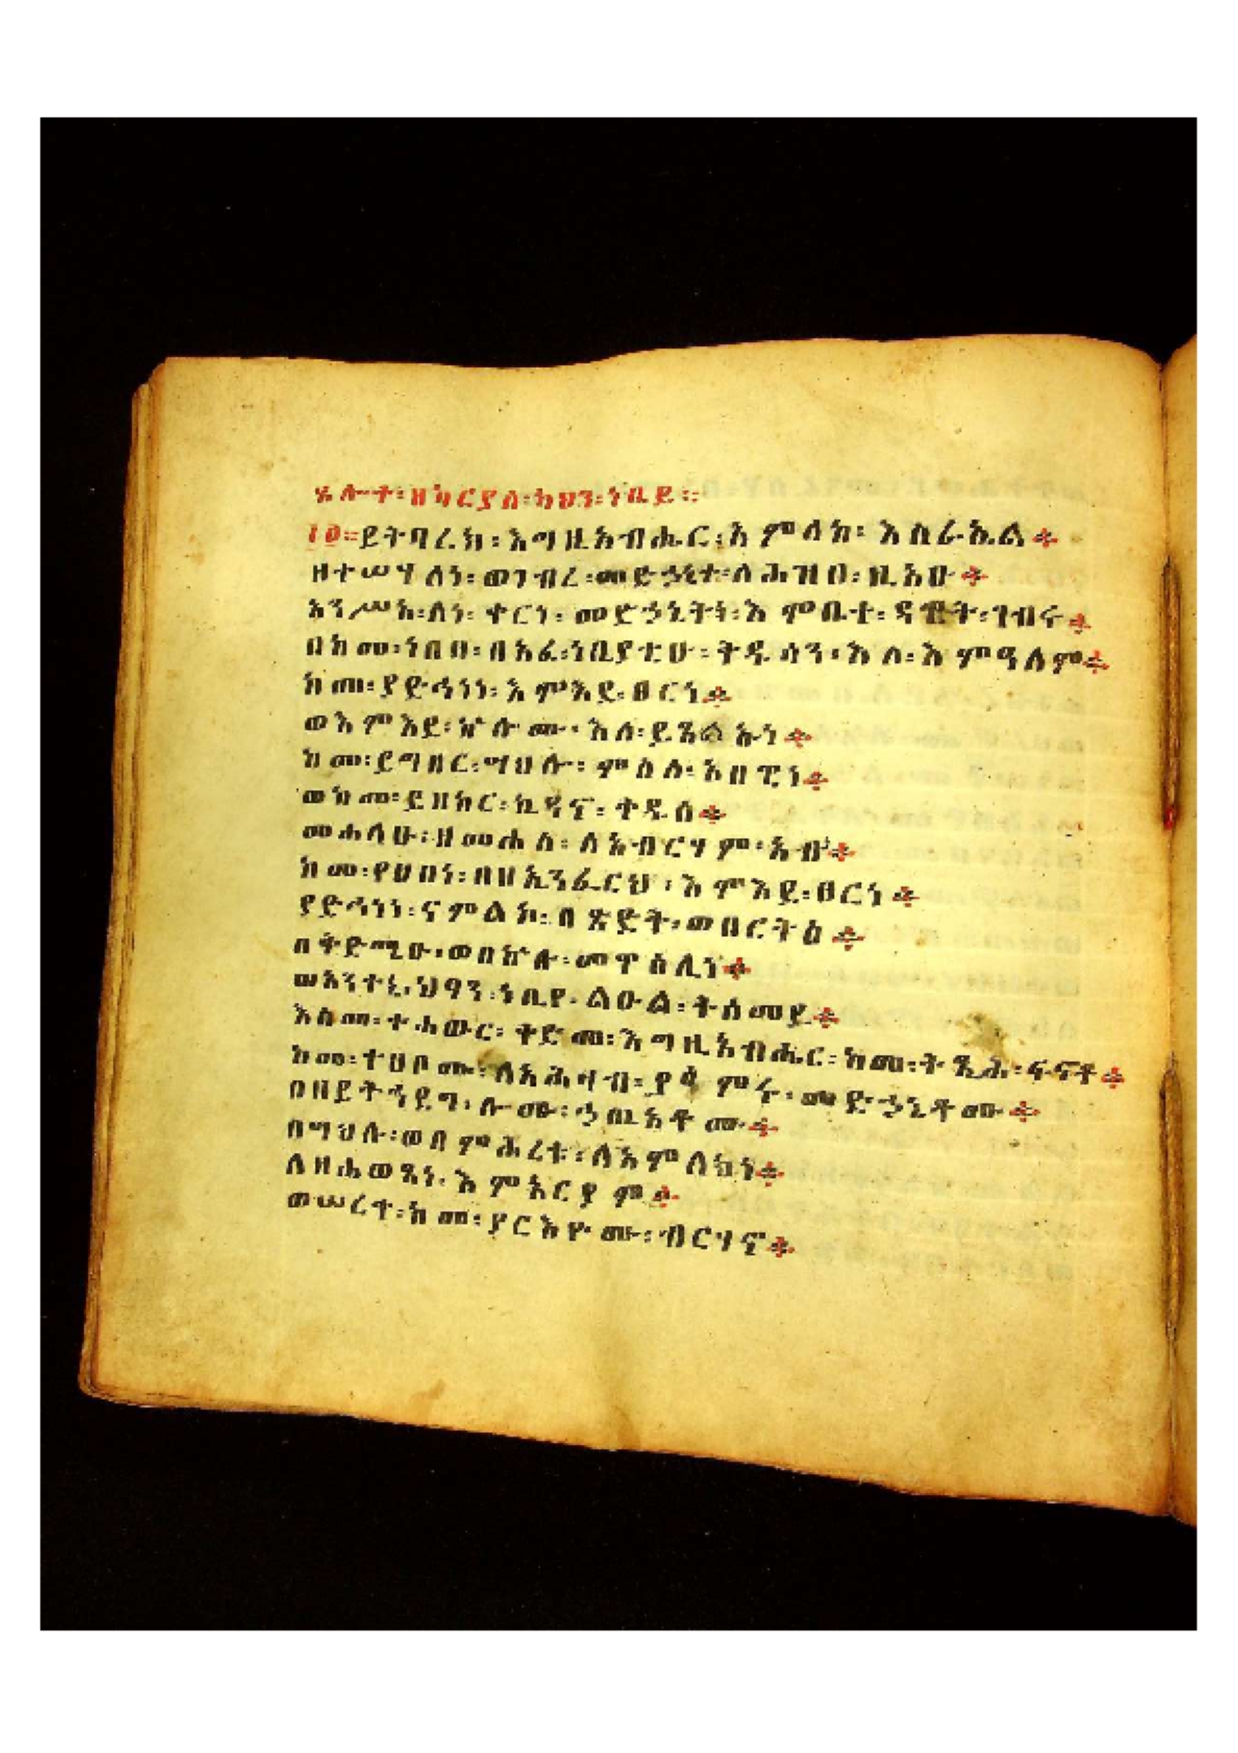 ጸሎተ፡ዘካርያስ፡ካህን፡ነቢይ።
፲፬።ይትባረክ፡እግዚአብሔር፡አምላከ፡እስራኤል፨
ዘተሣሃለነ፡ወገብረ፡መድኃኒተ፡ለሕዝበ፡ዚአሁ፨
አንሥአ፡ለነ፡ቀርነ፡መድኃኒትነ፡እምቤተ፡ዳዊት፡ገብሩ፨
በከመ፡ነበበ፡በአፈ፡ነቢያቲሁ፡ቅዱሳን፡እለ፡እምዓለም፨
ከመ፡ያድኅነነ፡እምእደ፡ፀርነ፨
ወእምእደ፡ኵሎሙ፡እለ፡ይጸልኡነ፨
ከመ፡ይግበር፡ሣህሎ፡ምስለ፡አበዊነ፨
ወከመ፡ይዘከር፡ኪዳኖ፡ቅዱሰ፨
መሐላሁ፡ዘመሐለ፡ለአብርሃም፡አብ፨
ከመ፡የሀበነ፡በዘኢንፈርህ፡እምእደ፡ፀርነ፨
ያድኅነነ፡ናምልኮ፡በጽድቅ፡ወበርትዕ፨
በቅድሜሁ፡ወበኵሉ፡መዋዕሊነ፨
ወአንተኒ፡ህፃን፡ነቢየ፡ልዑል፡ትሰመይ፨
እስመ፡ተሐውር፡ቅድመ፡እግዚአብሔር፡ከመ፡ትጺሕ፡ፍኖቶ፨
ከመ፡ተሀቦሙ፡ለአሕዛብ፡ያእምሩ፡መድኃኒቶሙ፨
በዘይትኀደግ፡ሎሙ፡ኃጢአቶሙ፨
በሣህሉ፡ወበምሕረቱ፡ለአምላክነ፨
ለዘሐወጸነ፡እምአርያም፨
ወሠረቀ፡ከመ፡ያርእዮሙ፡ብርሃኖ፨